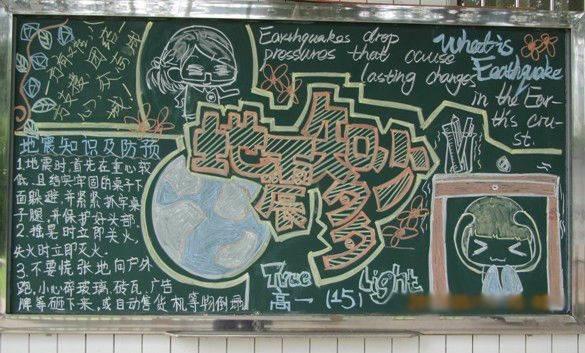 Earthquakes drop
pressures that cause
lasting changes
in the Ear-
this cru-
st.
What is
Earthquake
地震知多少
地震知识及防预
1、地震时,首先在重心较
低、且结实牢固的桌子下
面躲避,并紧紧抓牢桌
子腿,并保护好头部
2、摇晃时立即关火,
失火时立即灭火.
3、不要慌张地向户外
跑,小心碎玻璃,砖瓦、广告
牌等砸下来,或自动售货机等物倒塌
True Light
高一 (15)